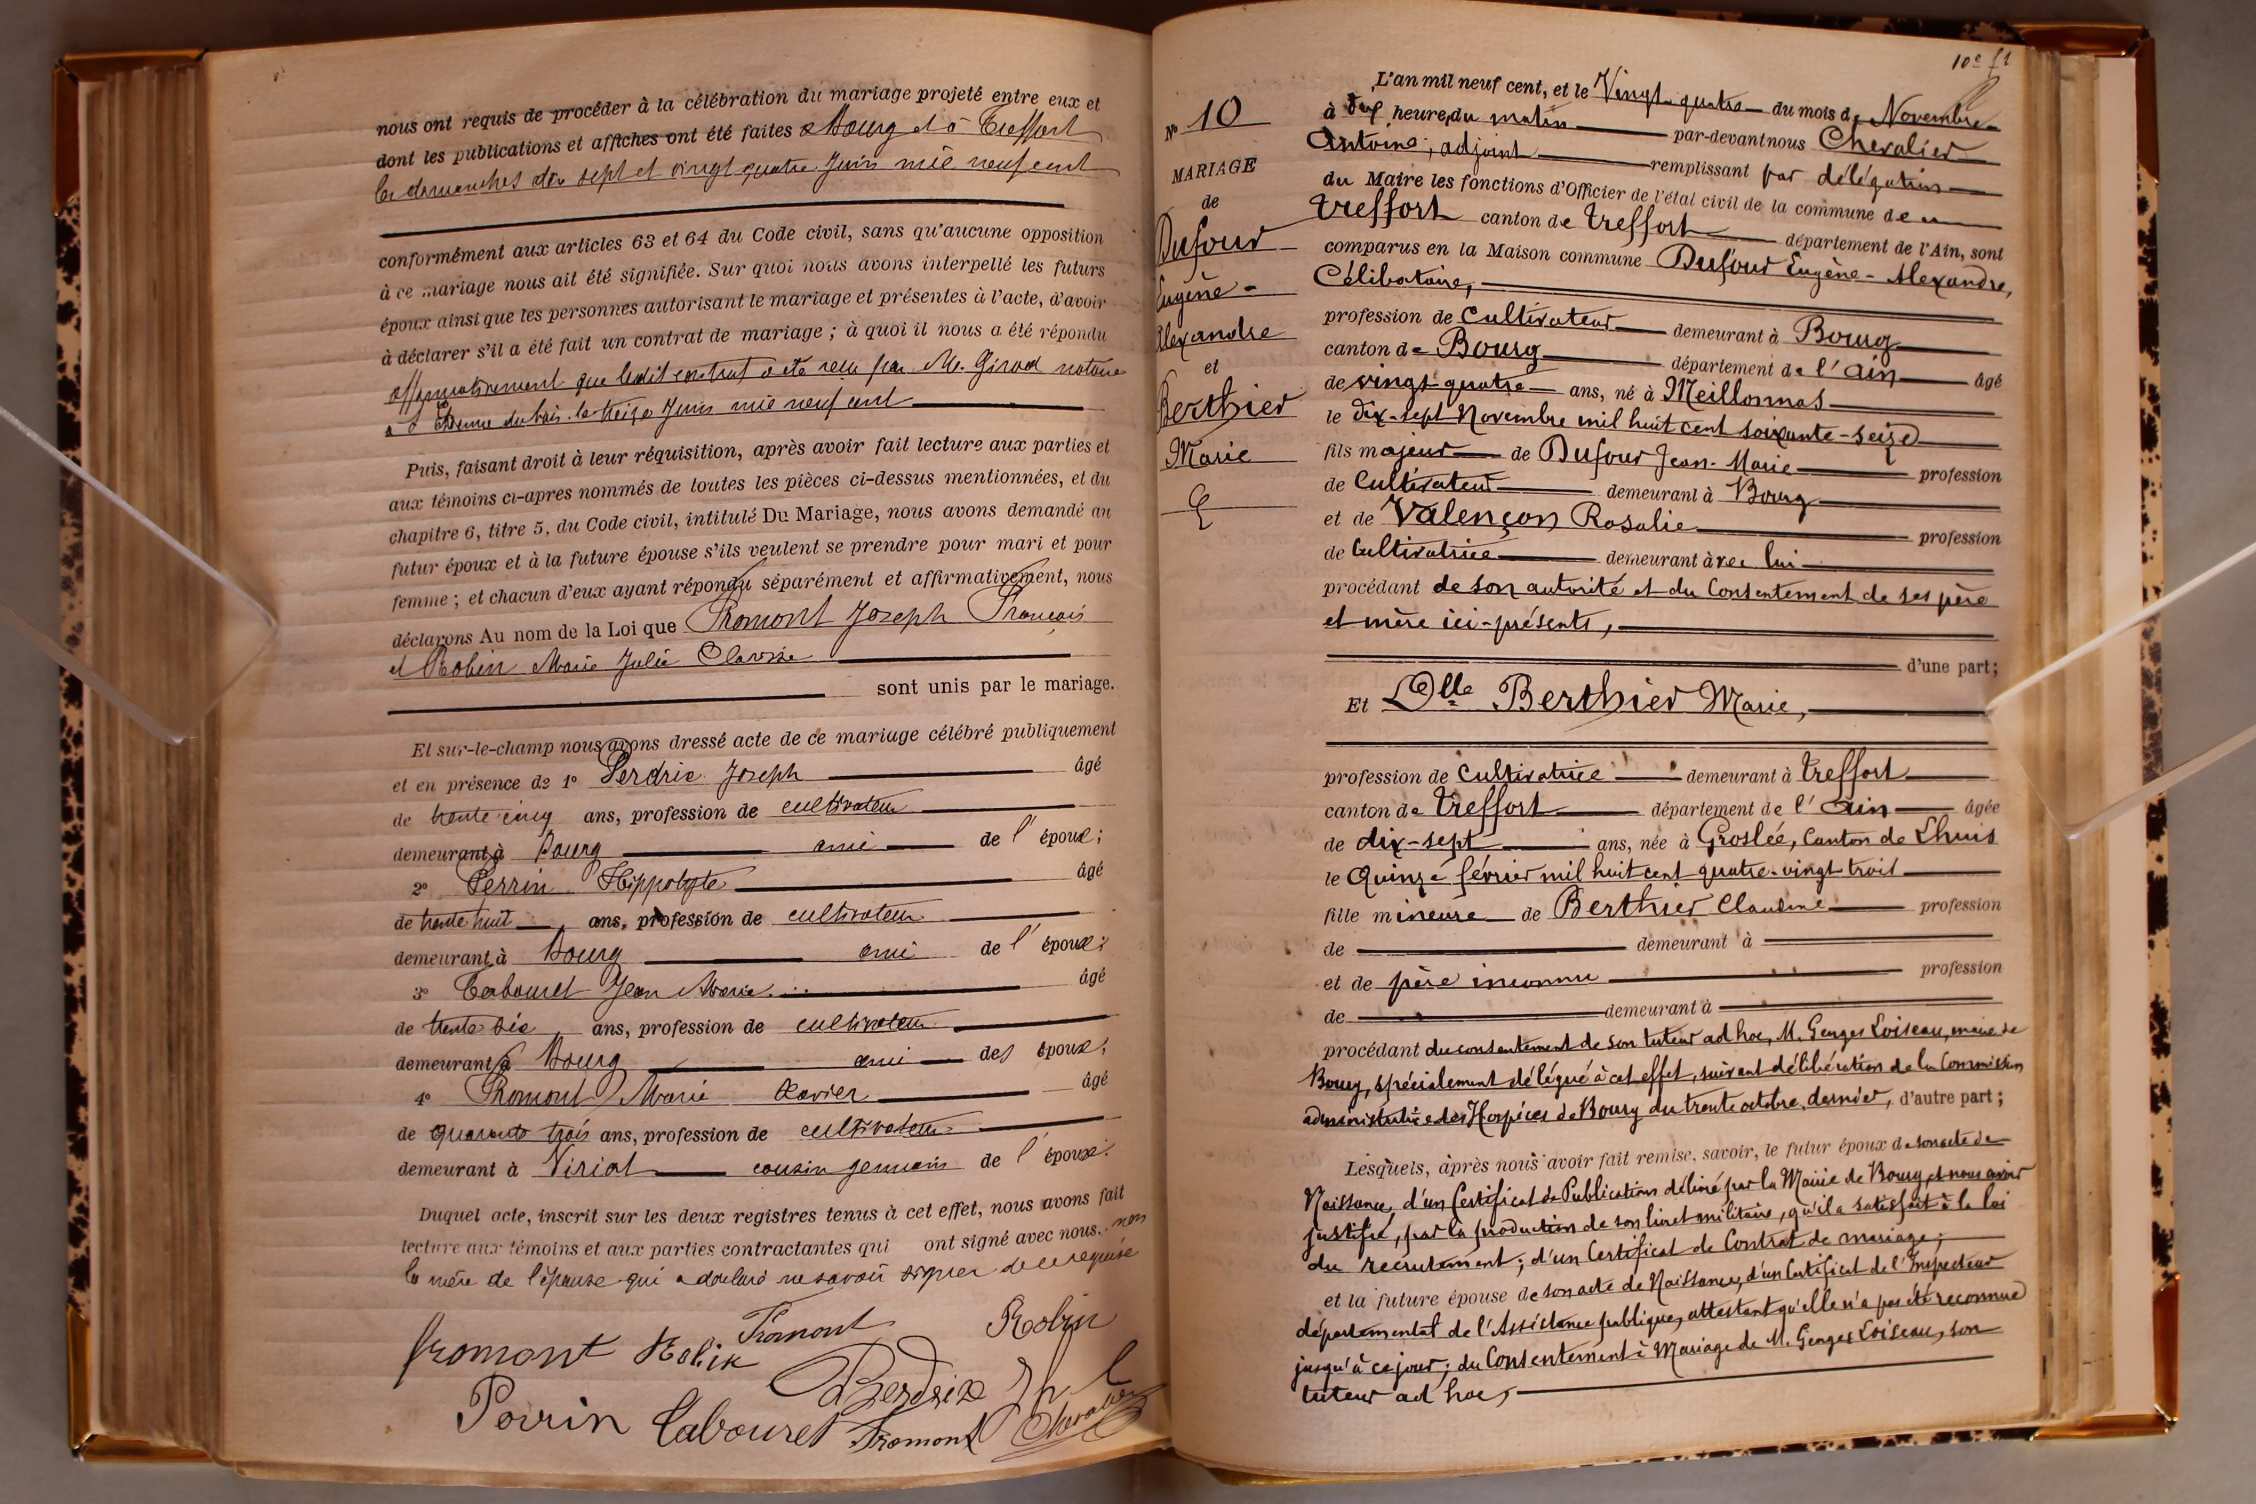 nous ont requis de procéder à la célébration du mariage projeté entre eux et
dont les publications et affiches ont été faites à Bourg et à Treffort
les dimanches dix sept et vingt quatre Juin mil neuf cent
conformément aux articles 63 et 64 du Code civil, sans qu'aucune opposition
à ce mariage nous ait été signifiée. Sur quoi nous avons interpellé les futurs
époux ainsi que les personnes autorisant le mariage et présentes à l'acte, d'avoir
à déclarer s'il a été fait un contrat de mariage ; à quoi il nous a été répondu
affirmativement que ledit contrat a été reçu par Me. Girod notaire
à St Etienne du bois le treize Juin mil neuf cent
Puis, faisant droit à leur réquisition, après avoir fait lecture aux parties et
aux témoins ci-apres nommés de toutes les pièces ci-dessus mentionnées, et du
chapitre 6, titre 5, du Code civil, intitulé Du Mariage, nous avons demandé au
futur époux et à la future épouse s'ils veulent se prendre pour mari et pour
femme ; et chacun d'eux ayant répondu séparément et affirmativement, nous
déclarons Au nom de la Loi que Fromont Joseph François
et Robin Marie Julie Clarisse
sont unis par le mariage.
Et sur-le-champ nous avons dressé acte de ce mariage célébré publiquement
et en présence de 1° Perdrix Joseph âgé
de trente cinq ans, profession de cultivateur
demeurant à Bourg ami de l' époux ;
2° Perrin Hippolyte âgé
de trente huit ans, profession de cultivateur
demeurant à Bourg ami de l' époux ;
3° Tabouret Jean Marie âgé
de trente six ans, profession de cultivateur
demeurant à Bourg ami des époux ;
4° Fromont Marie Xavier âgé
de quarante trois ans, profession de cultivateur
demeurant à Viriat cousin germain de l' époux.
Duquel acte, inscrit sur les deux registres tenus à cet effet, nous avons fait
lecture aux témoins et aux parties contractantes qui ont signé avec nous. non
la mère de l'épouse qui a déclaré ne savoir signer de ce requise
fromont Robin Fromont Robin
Perdrix
Perrin Tabouret Fromont Chevalier
10e ft
N° 10
MARIAGE
de
Dufour
Eugène-
Alexandre
et
Berthier
Marie
L'an mil neuf cent, et le Vingt-quatre du mois de Novembre
à dix heures du matin par-devant nous Chevalier
Antoine, adjoint remplissant par délégation
du Maire les fonctions d'Officier de l'état civil de la commune de
Treffort canton de Treffort département de l'Ain, sont
comparus en la Maison commune Dufour Eugène-Alexandre,
Célibataire,
profession de Cultivateur demeurant à Bourg
canton de Bourg département de l'Ain âgé
de vingt-quatre ans, né à Meillonnas
le dix-sept Novembre mil huit cent soixante-seize
fils majeur de Dufour Jean-Marie profession
de Cultivateur demeurant à Bourg
et de Valençon Rosalie profession
de Cultivatrice demeurant avec lui
procédant de son autorité et du Consentement de ses père
et mère ici-présents,
d'une part ;
Et Dlle Berthier Marie,
profession de Cultivatrice demeurant à Treffort
canton de Treffort département de l'Ain âgée
de dix-sept ans, née à Groslée, Canton de Lhuis
le Quinze février mil huit cent quatre-vingt trois
fille mineure de Berthier Claudine profession
de demeurant à
et de père inconnu profession
de demeurant à
procédant du consentement de son tuteur ad hoc, M. Georges Loiseau, maire de
Bourg, spécialement délégué à cet effet, suivant délibération de la Commission
administrative des Hospices de Bourg du trente octobre dernier, d'autre part ;
Lesquels, après nous avoir fait remise, savoir, le futur époux de son acte de
Naissance, d'un Certificat de Publication délivré par la Mairie de Bourg, et nous avoir
justifié, par la production de son livret militaire, qu'il a satisfait à la loi
du recrutement ; d'un Certificat de Contrat de mariage ;
et la future épouse de son acte de Naissance, d'un Certificat de l'Inspecteur
départemental de l'Assistance publique, attestant qu'elle n'a pas été reconnue
jusqu'à ce jour ; du Consentement à Mariage de M. Georges Loiseau, son
tuteur ad hoc,